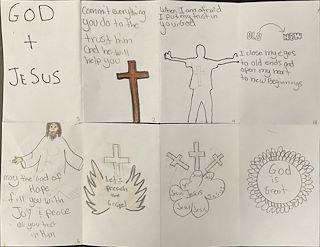 GOD
+
JESUS
Commit everything
you do to the
trust him
and he will
help you
When I am afraid
I put my trust in
your God
OLD NEW
I close my eyes
to old ends and
open my heart
to new Beginnings
may the God of
Hope
fill you with
Joy & peace
as you trust
in Him
Let's
preach the
Gospel
Jesus
Jesus
Jesus
God
is
Great